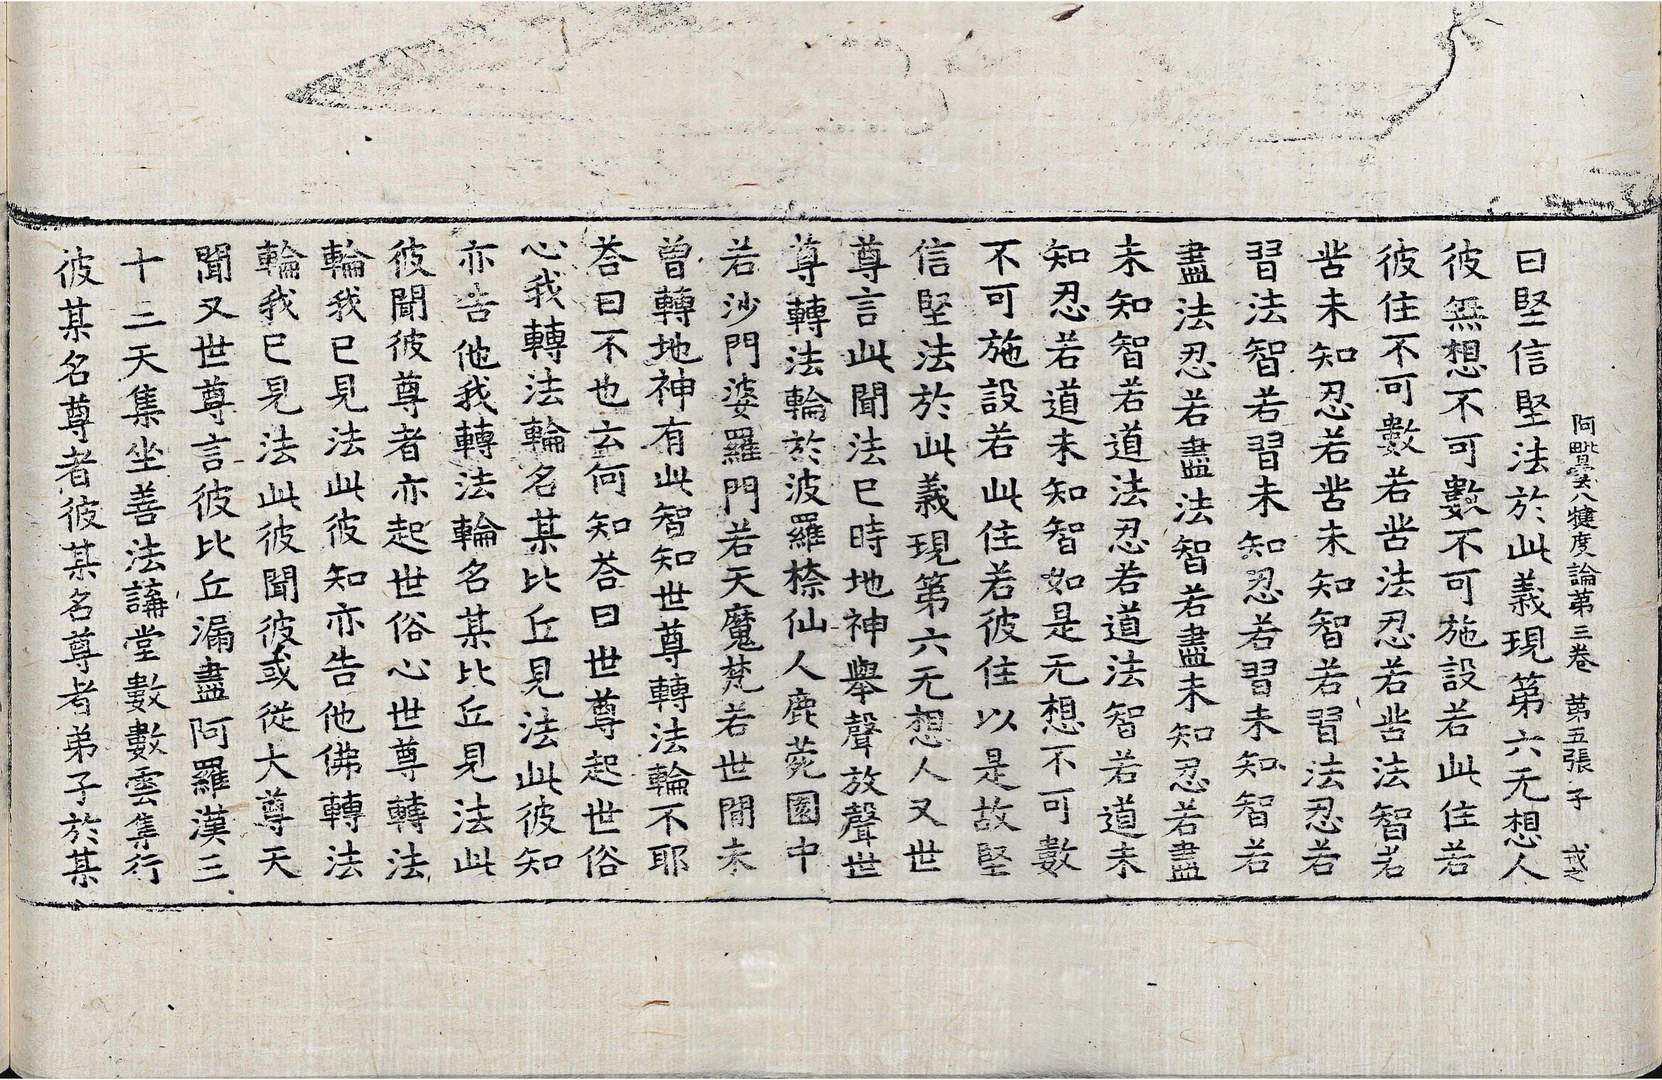 阿毗曇八犍度論第三卷 第五張 子 戒之
曰堅信堅法於此義現第六无想人
彼無想不可數不可施設若此住若
彼住不可數若苦法忍若苦法智若
苦未知忍若苦未知智若習法忍若
習法智若習未知忍若習未知智若
盡法忍若盡法智若盡未知忍若盡
未知智若道法忍若道法智若道未
知忍若道未知智如是无想不可數
不可施設若此住若彼住以是故堅
信堅法於此義現第六无想人又世
尊言此聞法已時地神舉聲放聲世
尊轉法輪於波羅㮈仙人鹿菀園中
若沙門婆羅門若天魔梵若世間未
曾轉地神有此智知世尊轉法輪不耶
荅曰不也云何知荅曰世尊起世俗
心我轉法輪名某比丘見法此彼知
亦告他我轉法輪名某比丘見法此
彼聞彼尊者亦起世俗心世尊轉法
輪我已見法此彼知亦告他佛轉法
輪我已見法此彼聞彼或從大尊天
聞又世尊言彼比丘漏盡阿羅漢三
十三天集坐善法講堂數數雲集行
彼某名尊者彼某名尊者弟子於某